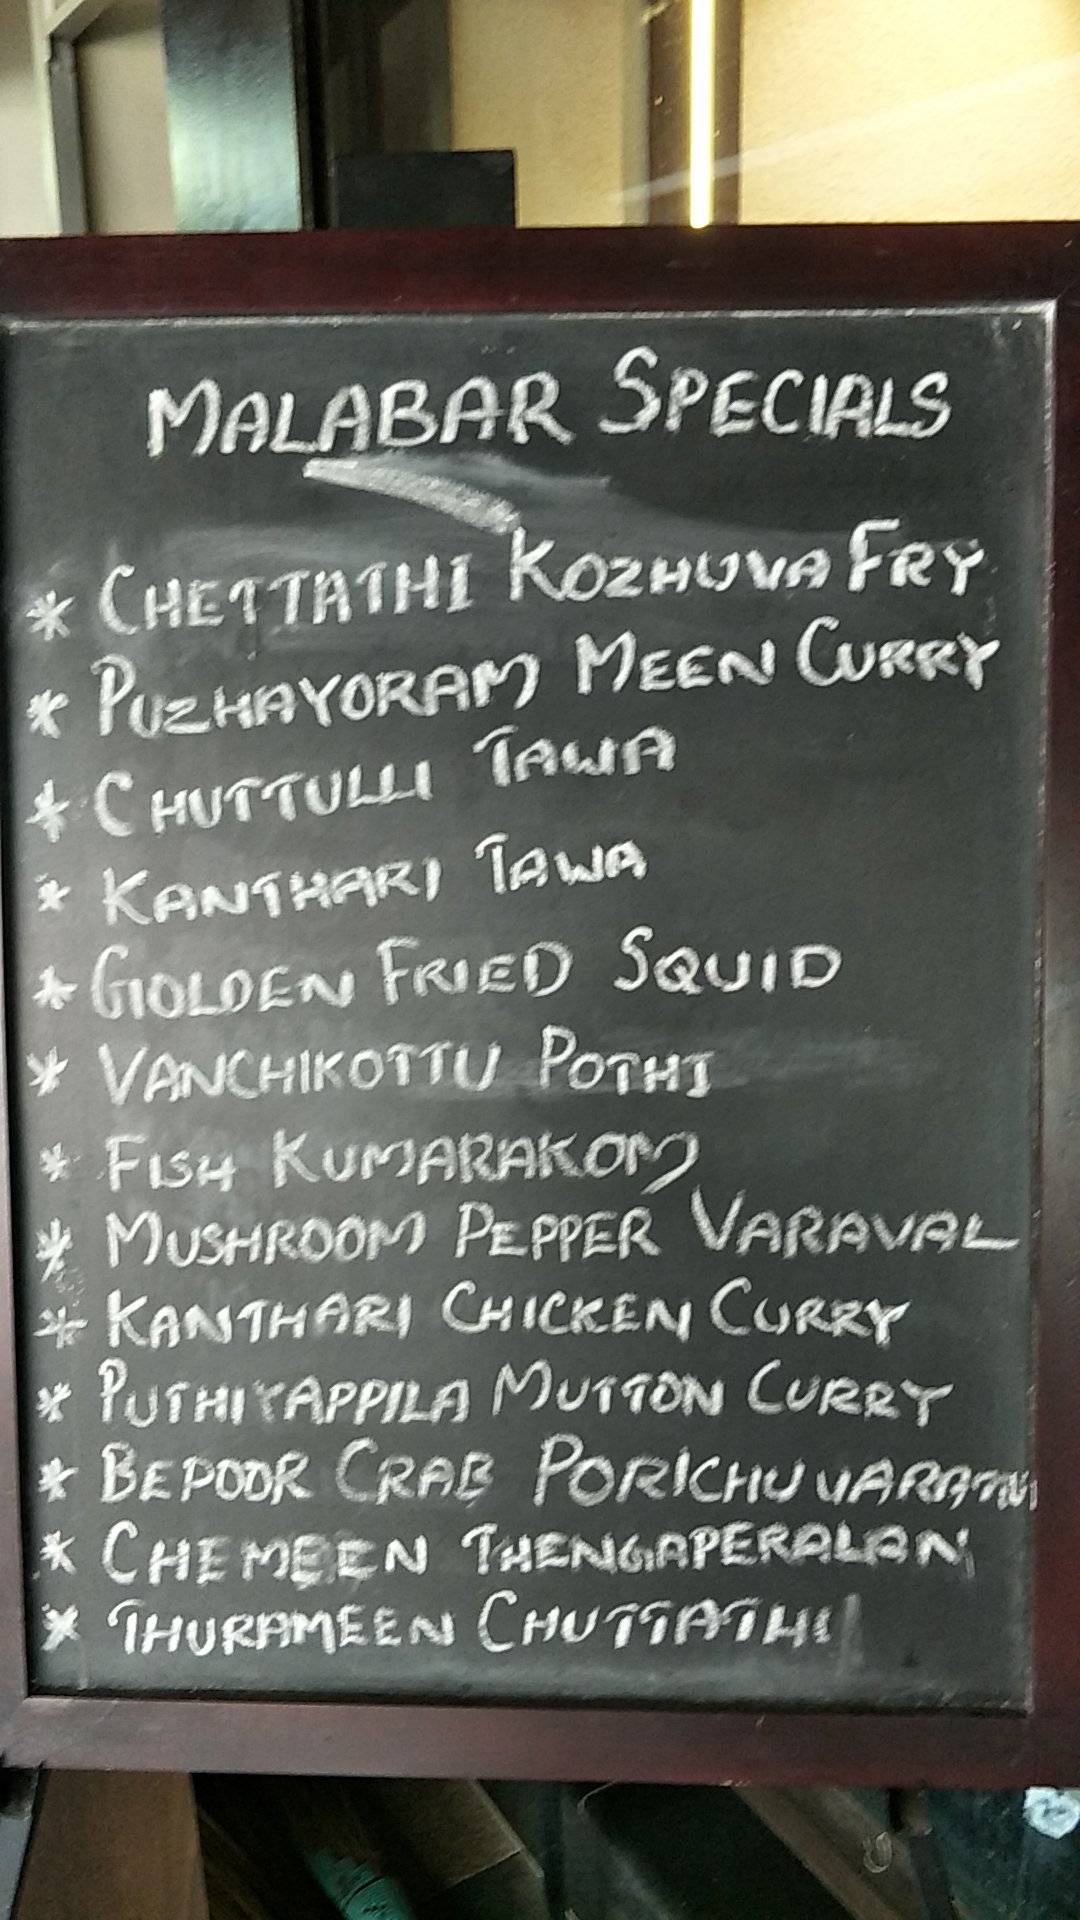 MALABAR SPECIALS
* CHETTATHI KOZHUVA FRY
* PUZHAYORAM MEEN CURRY
* CHUTTULLI TAWA
* KANTHARI TAWA
* GOLDEN FRIED SQUID
* VANCHIKOTTU POTHI
* FISH KUMARAKOM
* MUSHROOM PEPPER VARAVAL
* KANTHARI CHICKEN CURRY
* PUTHIYAPPILA MUTTON CURRY
* BEPOOR CRAB
* CHEMEEN THENGAPERALAN
* THURAMEEN CHUTTATHI